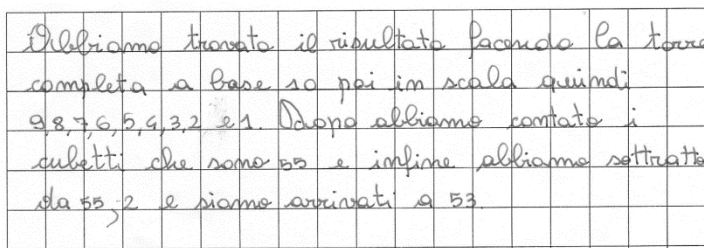 Abbiamo trovato il risultato facendo la torre
completa a base 10 poi in scala quindi
9,8,7,6,5,4,3,2 e 1. Dopo abbiamo contato i
cubetti che sono 55 e infine abbiamo sottratto
da 55, 2 e siamo arrivati a 53.